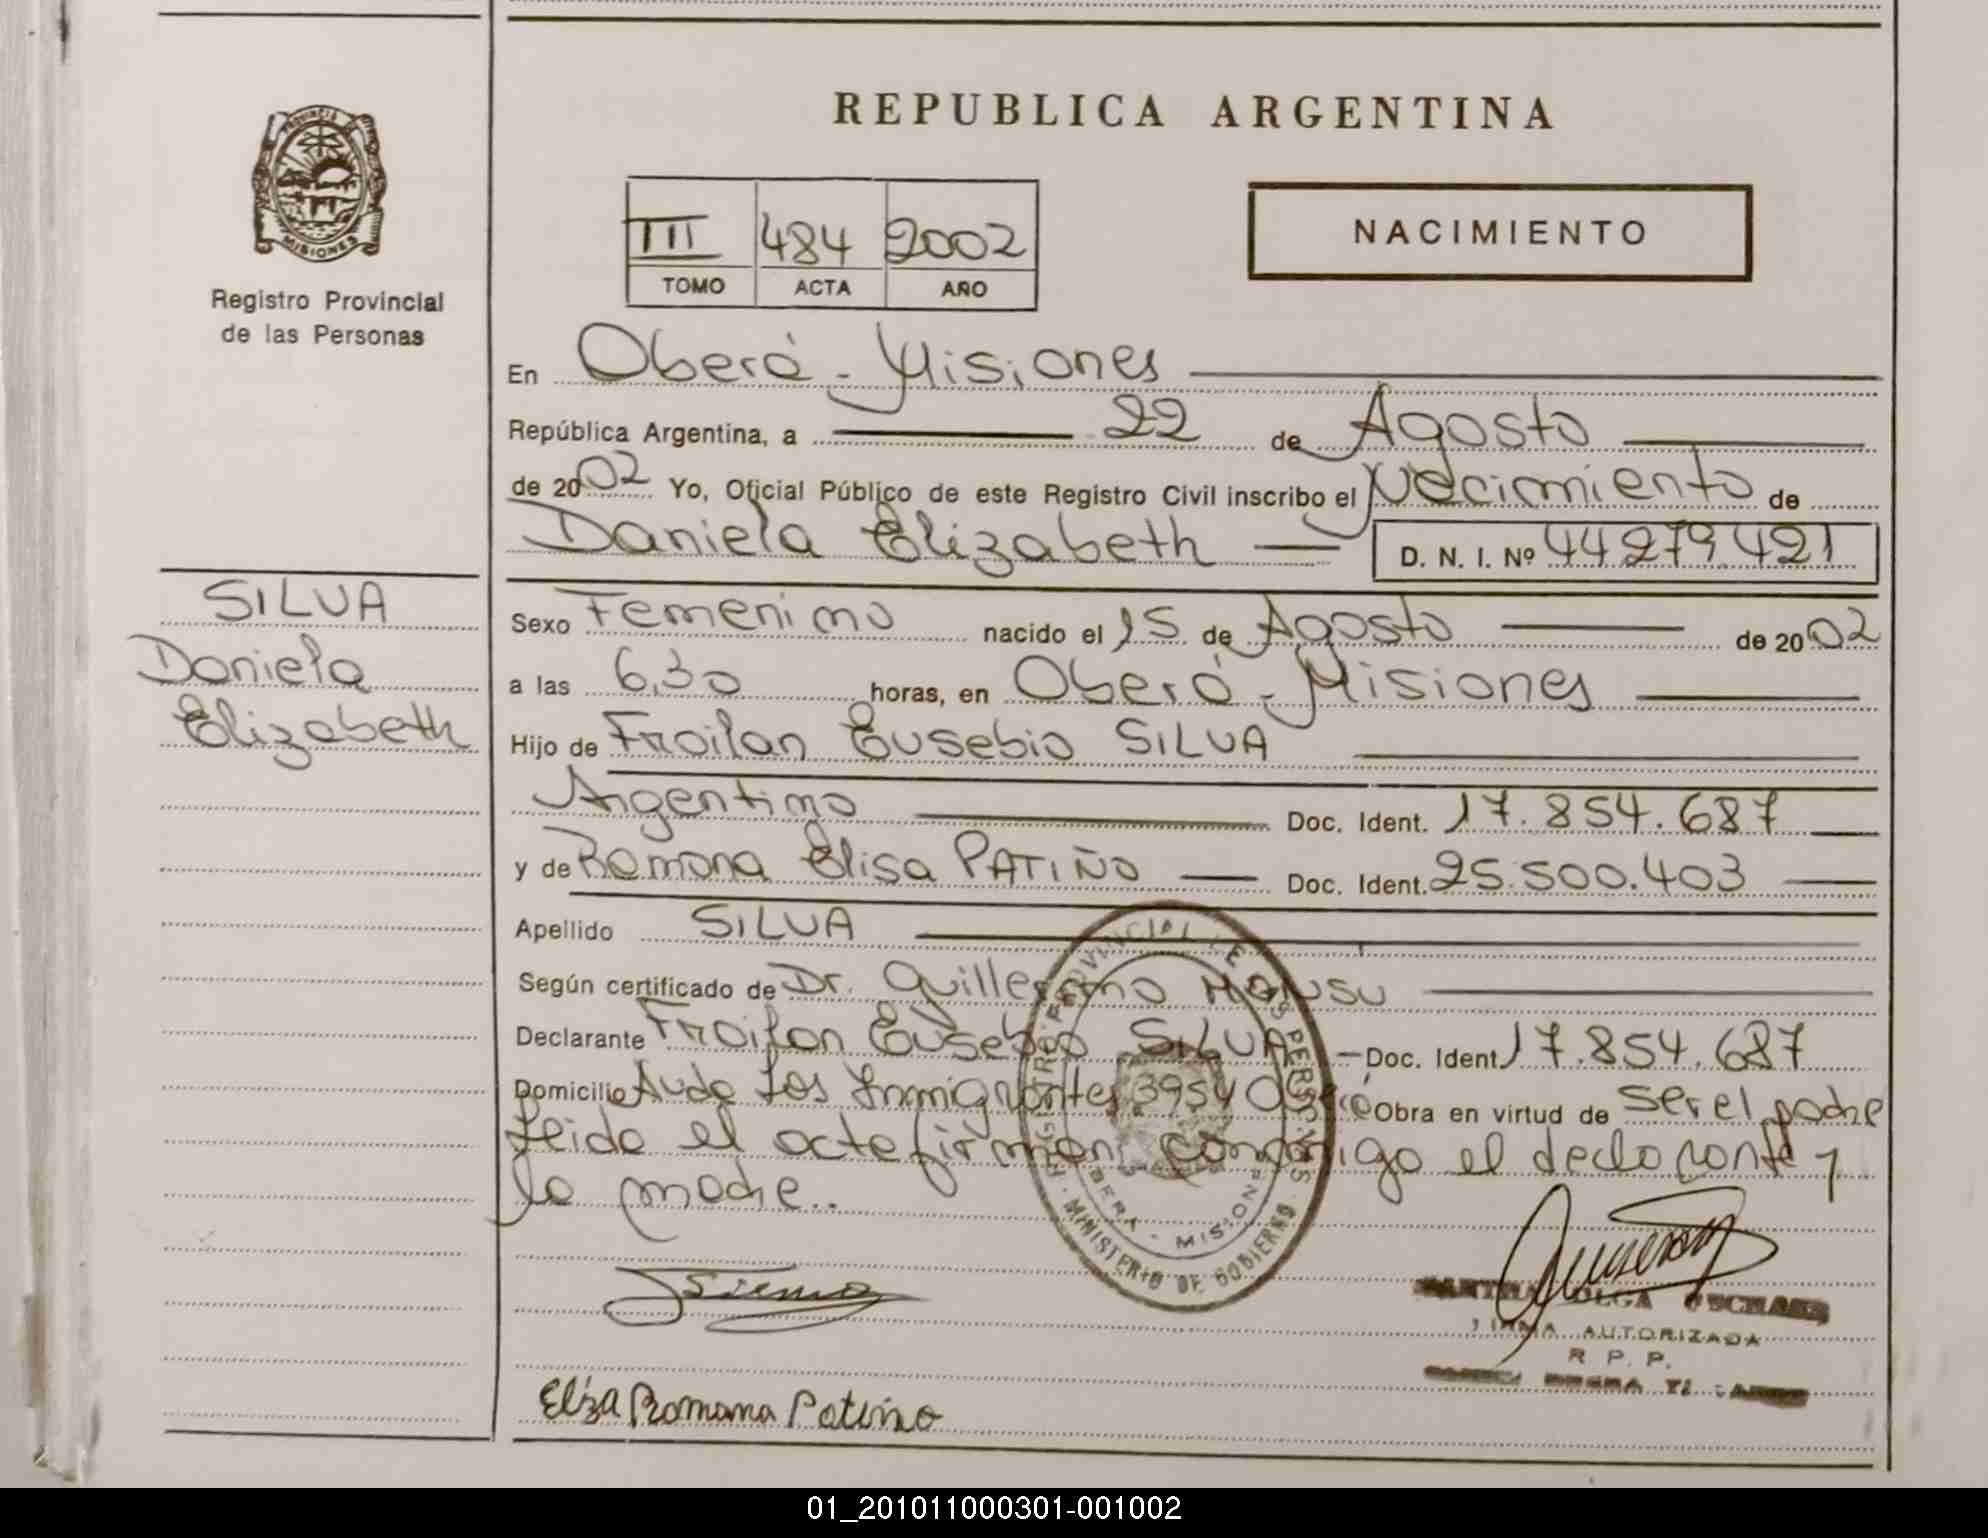 REPUBLICA ARGENTINA
PROVINCIA DE
MISIONES
Registro Provincial
de las Personas
III 484 2002
TOMO ACTA AÑO
NACIMIENTO
En Oberá - Misiones
República Argentina, a 22 de Agosto
de 2002 Yo, Oficial Público de este Registro Civil inscribo el Nacimiento de
Daniela Elizabeth D. N. I. Nº 44279.421
SILVA
Daniela
Elizabeth
Sexo Femenino nacido el 15 de Agosto de 2002
a las 6,30 horas, en Oberá - Misiones
Hijo de Froilan Eusebio SILVA
Argentino Doc. Ident. 17.854.687
y de Ramona Elisa PATIÑO Doc. Ident. 25.500.403
Apellido SILVA
Según certificado de Dr. Guillermo
Declarante Froilan Eusebio SILVA Doc. Ident. 17.854.687
Domicilio Avda Los Inmigrantes 3954 Oberá Obra en virtud de ser el padre
Leida el acta firman conmigo el declarante y
la madre..
REGISTRO PROVINCIAL DE LAS PERSONAS
MINISTERIO DE GOBIERNO
OBERA - MISIONES
OLGA
FIRMA AUTORIZADA
R. P. P.
Eliza Romana Patiño
01_201011000301-001002